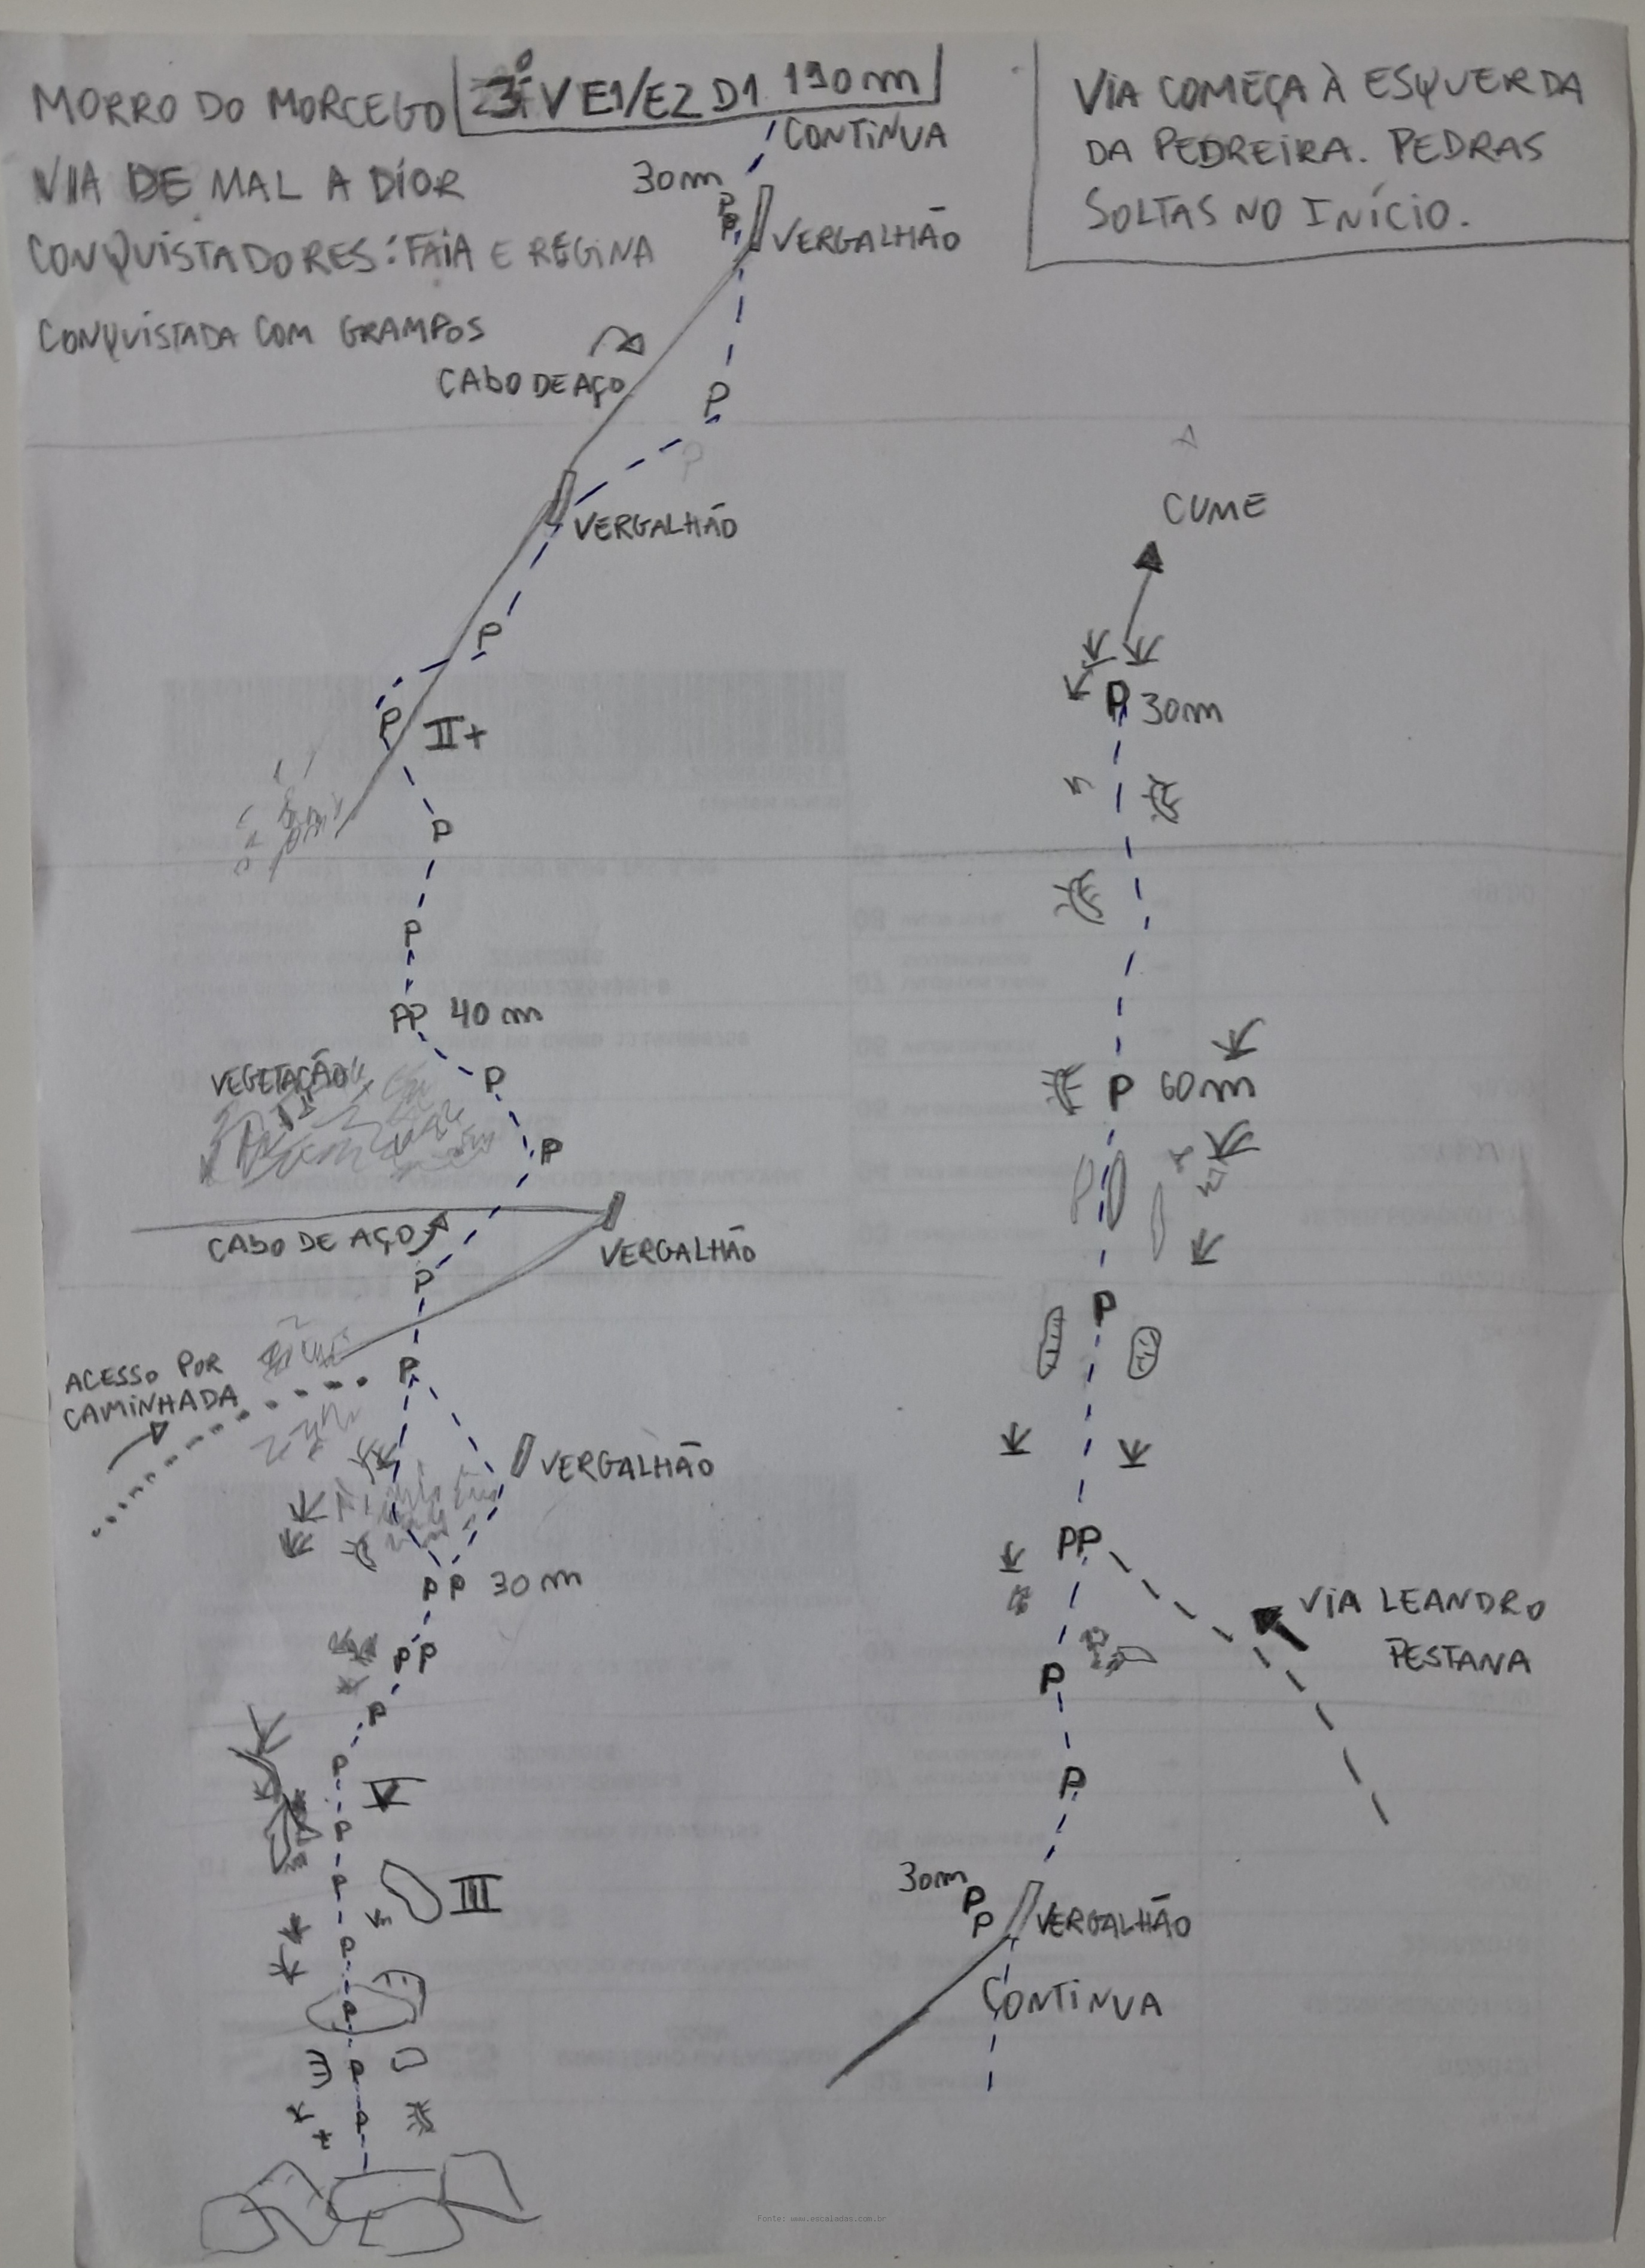 MORRO DO MORCEGO
3º V E1/E2 D1 190m
VIA DE MAL A DIOR
CONQUISTADORES: FAIA E REGINA
CONQUISTADA COM GRAMPOS
VIA COMEÇA À ESQUERDA
DA PEDREIRA. PEDRAS
SOLTAS NO INÍCIO.
CONTINUA
30m
P
P
VERGALHÃO
CABO DE AÇO
P
P
VERGALHÃO
P
P
II+
P
P
PP 40m
VEGETAÇÃO
P
P
CABO DE AÇO
VERGALHÃO
P
P
ACESSO POR
CAMINHADA
VERGALHÃO
PP 30m
PP
P
P
V
P
P
III
P
P
P
P
CUME
P 30m
P 60m
P
PP
VIA LEANDRO
PESTANA
P
P
30m
P
P
VERGALHÃO
CONTINUA
Fonte: www.escaladas.com.br